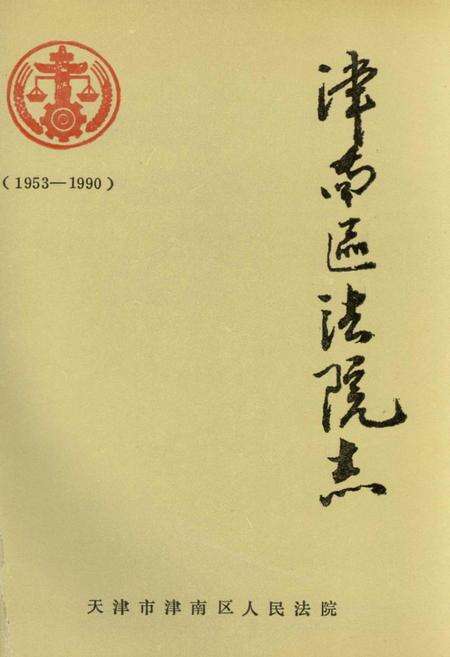 (1953—1990)
津南區法院志
天津市津南区人民法院